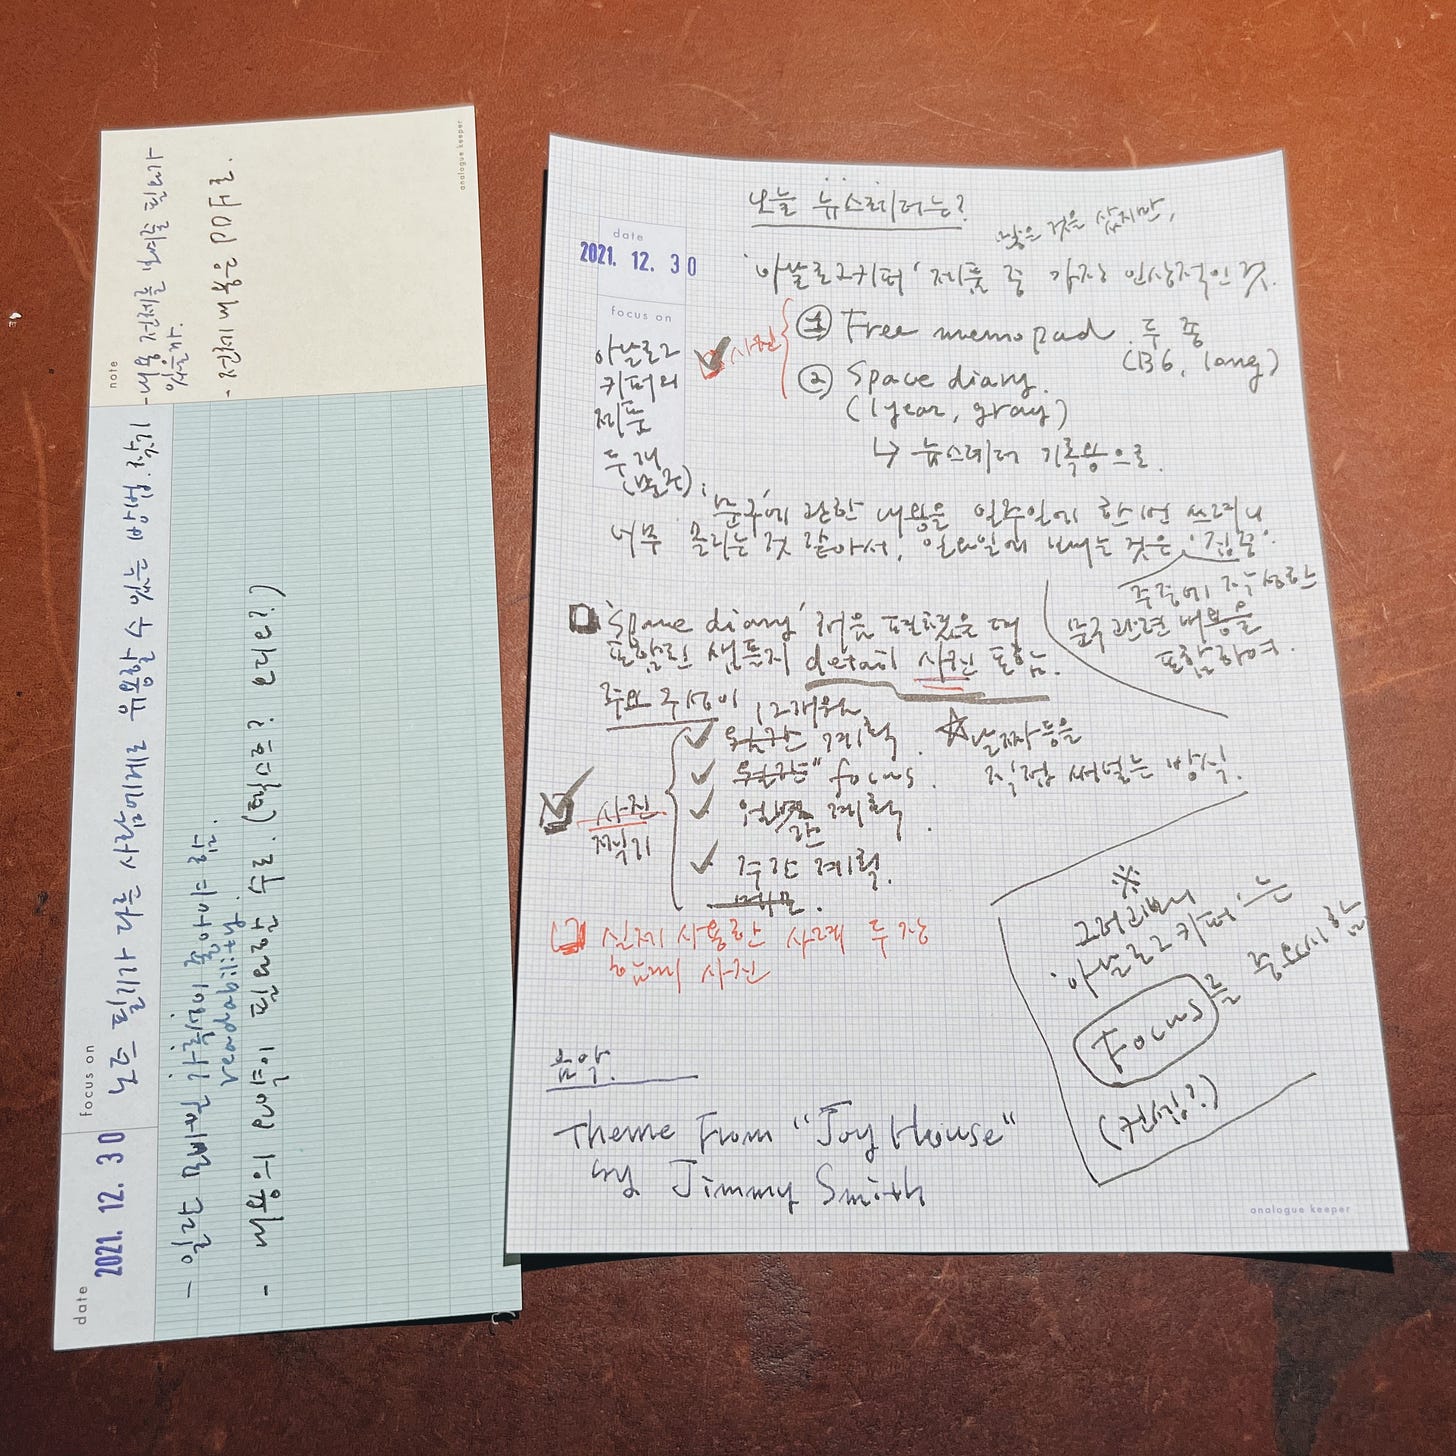 date
2021. 12. 30
focus on
노트 필기가 다른 사람에게도 유용할 수 있는 방법. 찾기
- 일단 글씨를 가독성이 좋아야 함.
readability.
- 내용의 요약이 필요할 수도. (핵심은? 어디에?)
note
- 내용 전체를 보여줄 필요가
있을까.
- 전체 내용은 PDF로.
analogue keeper
오늘 뉴스레터는?
많은 것을 샀지만,
date
2021. 12. 30
'아날로그키퍼' 제품 중 가장 인상적인 것.
focus on
아날로그
키퍼의
제품
두 개
(문구)
사진
① Free memopad. 두 종
(B6, long)
② Space diary.
(1year, gray)
↳ 뉴스레터 기록용으로.
'문구'에 관한 내용을 일주일에 한 번 쓰려니
너무 몰리는 것 같아서, 일요일에 보내는 것은 '집중'.
주중에 작성한
문구 관련 내용을
포함하여.
'Space diary' 처음 펼쳤을 때
포함된 샘플지 detail 사진 포함.
주요 구성이
12개월
계획.
focus.
월별 계획
간
주간 계획.
메모.
☆날짜 등을
직접 써넣는 방식.
사진
찍기
실제 사용한 사례 두 장
예쁘게 사진
※
그러고보니
'아날로그키퍼'는
Focus를 중요시 함
(컨셉?)
음악.
Theme From "Joy House"
by Jimmy Smith
analogue keeper